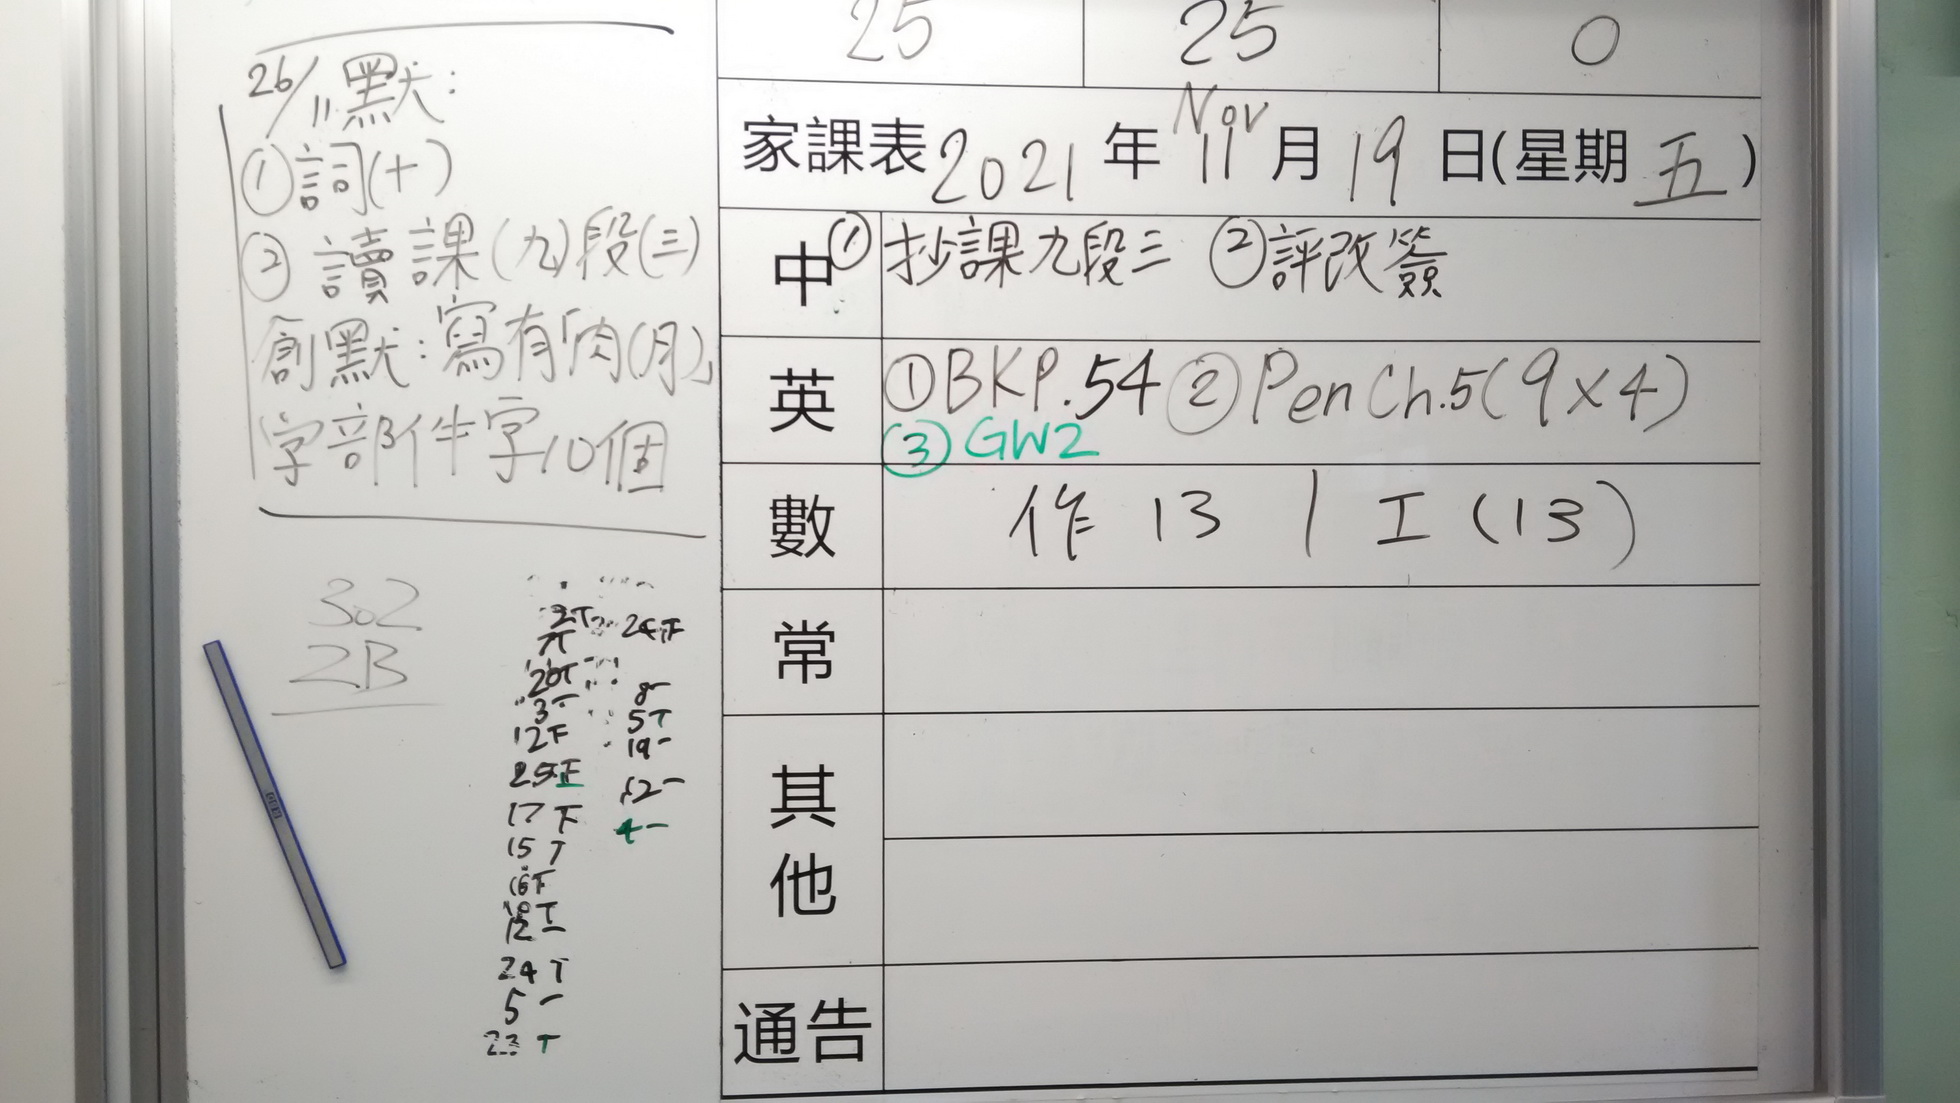 25 25 0
26/11 默:
①詞(十)
② 讀課(九)段(三)
創默:寫有「肉(月)」
字部件字10個
302
2B
24下
3丅
12下
5丅
19一
25正
12一
17下
4一
15丅
16下
12一
24丅
5一
23丅
家課表 2021 年 Nov 11 月 19 日(星期 五)
中 ①抄課九段三 ②評改簽
英 ①BKP.54 ②Pen Ch.5(9×4)
③GW2
數 作 13 | 工(13)
常
其他
通告